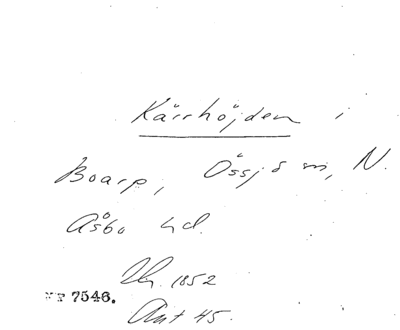 Kärrhöjden i
Boarp, Össjö sn, N.
Åsbo hd.
Uk. 1852
7546.
Ant 45.